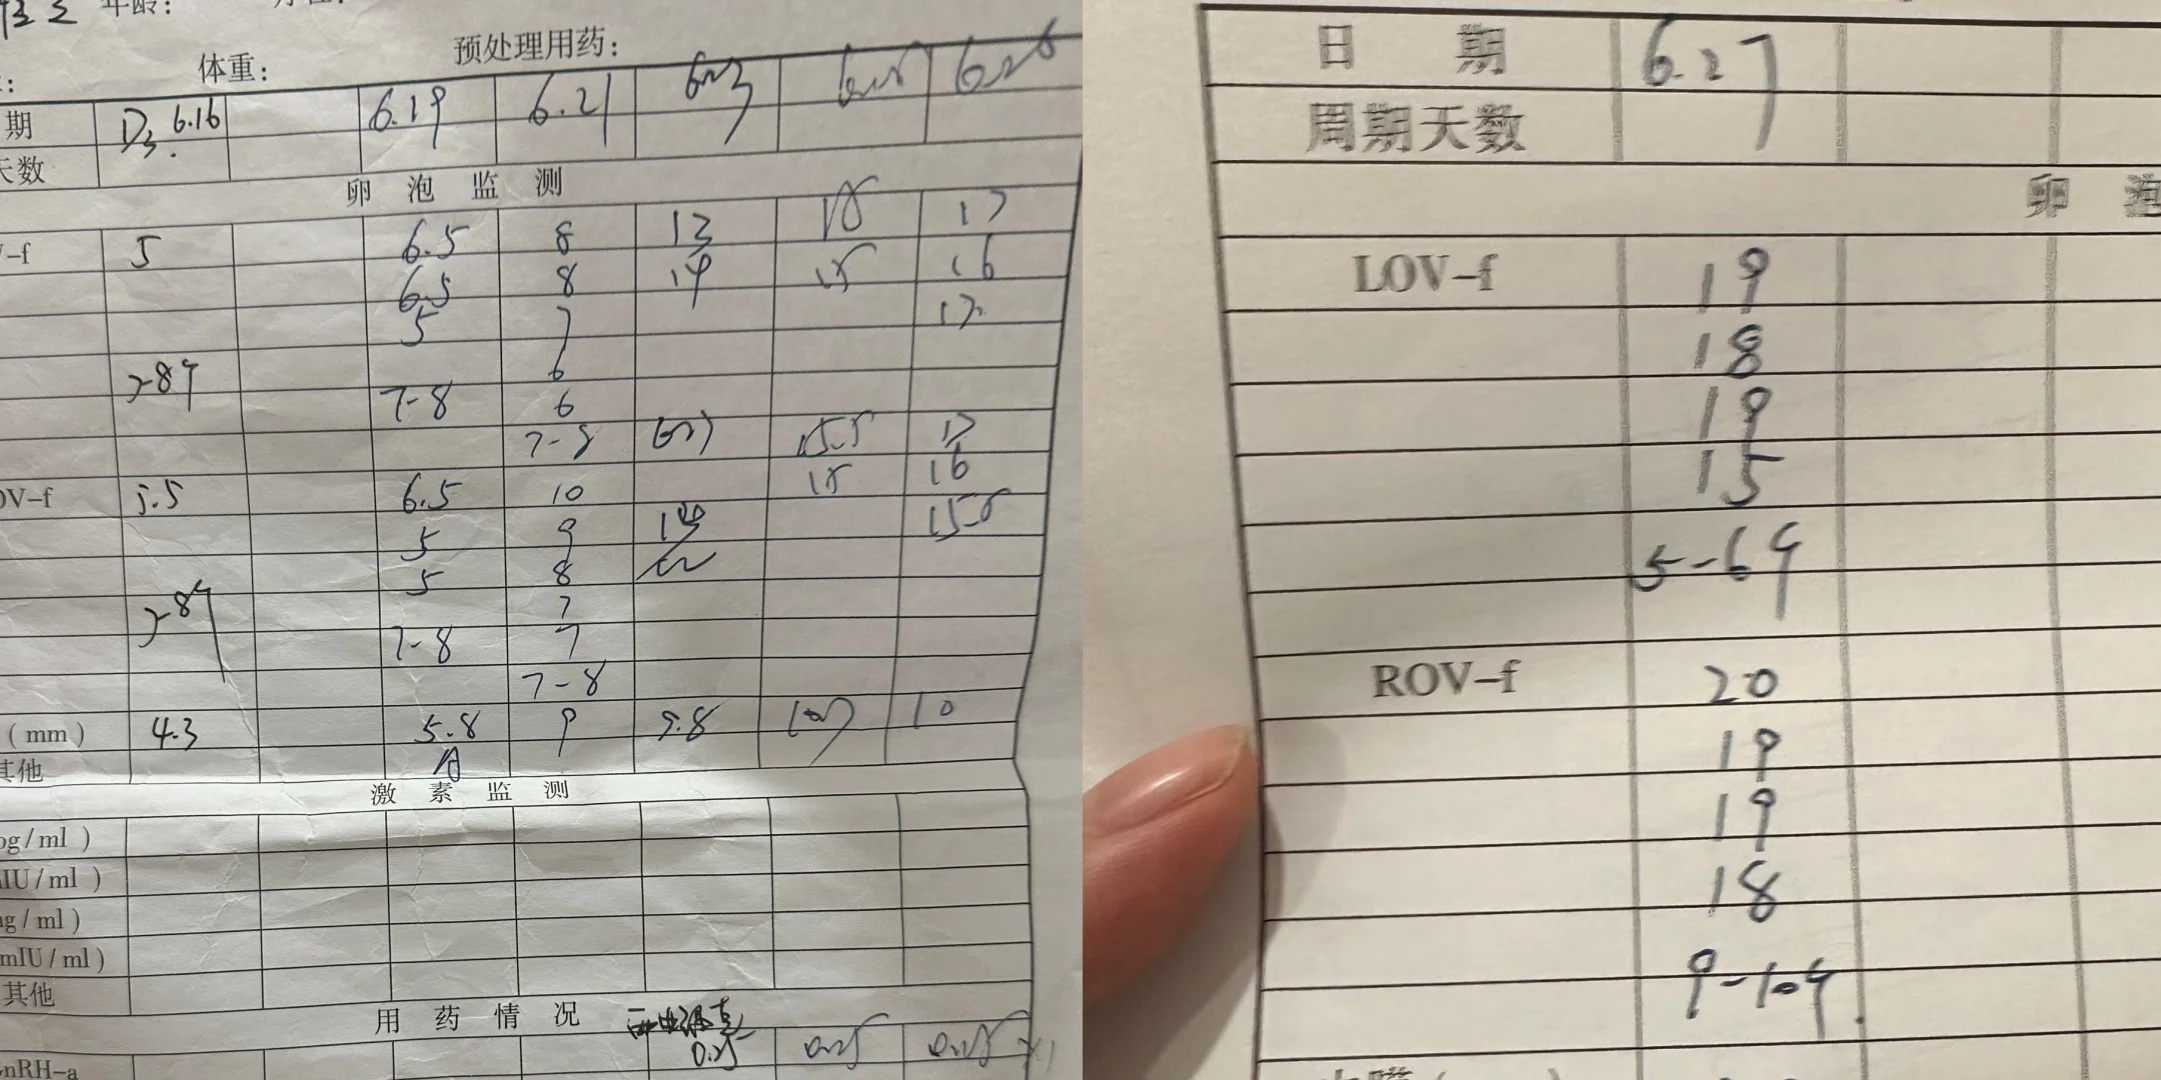 年龄:
体重: 预处理用药:
期 D3 6.16 6.19 6.21 6.23 6.25 6.26
天数
卵 泡 监 测
-f 5 6.5 8 13 15 17
6.5 8 14 15 16
5 7 17
7-8个 6
7-8 6
7-8 15.5 17
OV-f 5.5 6.5 10 15 16
5 9 15.5
5 8 12
7-8个 7
7-8 7
7-8
(mm) 4.3 5.8 9 9.8 10
其他 A
激 素 监 测
pg/ml)
IU/ml)
ng/ml)
mIU/ml)
其他
用 药 情 况
0.25 0.25 0.25
GnRH-a
日 期 6.27
周期天数
卵 泡
LOV-f 19
18
19
15
5-6个
ROV-f 20
19
19
18
9-10个